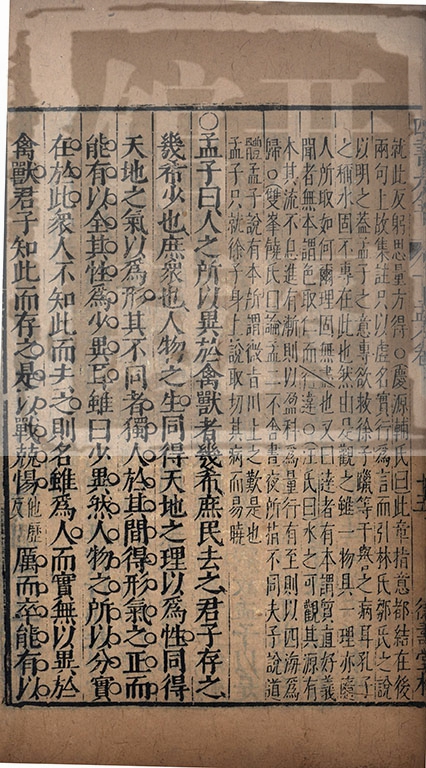 就此反躬思量方得○慶源輔氏曰此章指意都結在後
兩句上故集註只以虛名實行為言而引林氏鄒氏之說
以明之蓋孟子之意專欲救徐子躐等干譽之病耳孔子
之稱水固不專在此也然由是觀之雖一物具一理亦隨
人所取如何爾理固無盡也又曰達者有本謂質直好義
聞者無本謂色取仁而行違○汪氏曰水之可觀其源有
本其流不息進有漸則以盈科為量行有至則以四海為
歸○雙峯饒氏曰論孟二不舍晝夜所指不同夫子說道
體孟子說有本所謂微旨川上之歎是也
孟子只就徐子身上說取切其病而易曉
○孟子曰人之所以異於禽獸者幾希庶民去之君子存之
幾希少也庶衆也人物之生同得天地之理以為性同得
天地之氣以為形其不同者獨人於其間得形氣之正而
能有以全其性為少異耳雖曰少異然人物之所以分實
在於此衆人不知此而去之則名雖為人而實無以異於
禽獸君子知此而存之是以戰兢惕他歷反厲而卒能有以